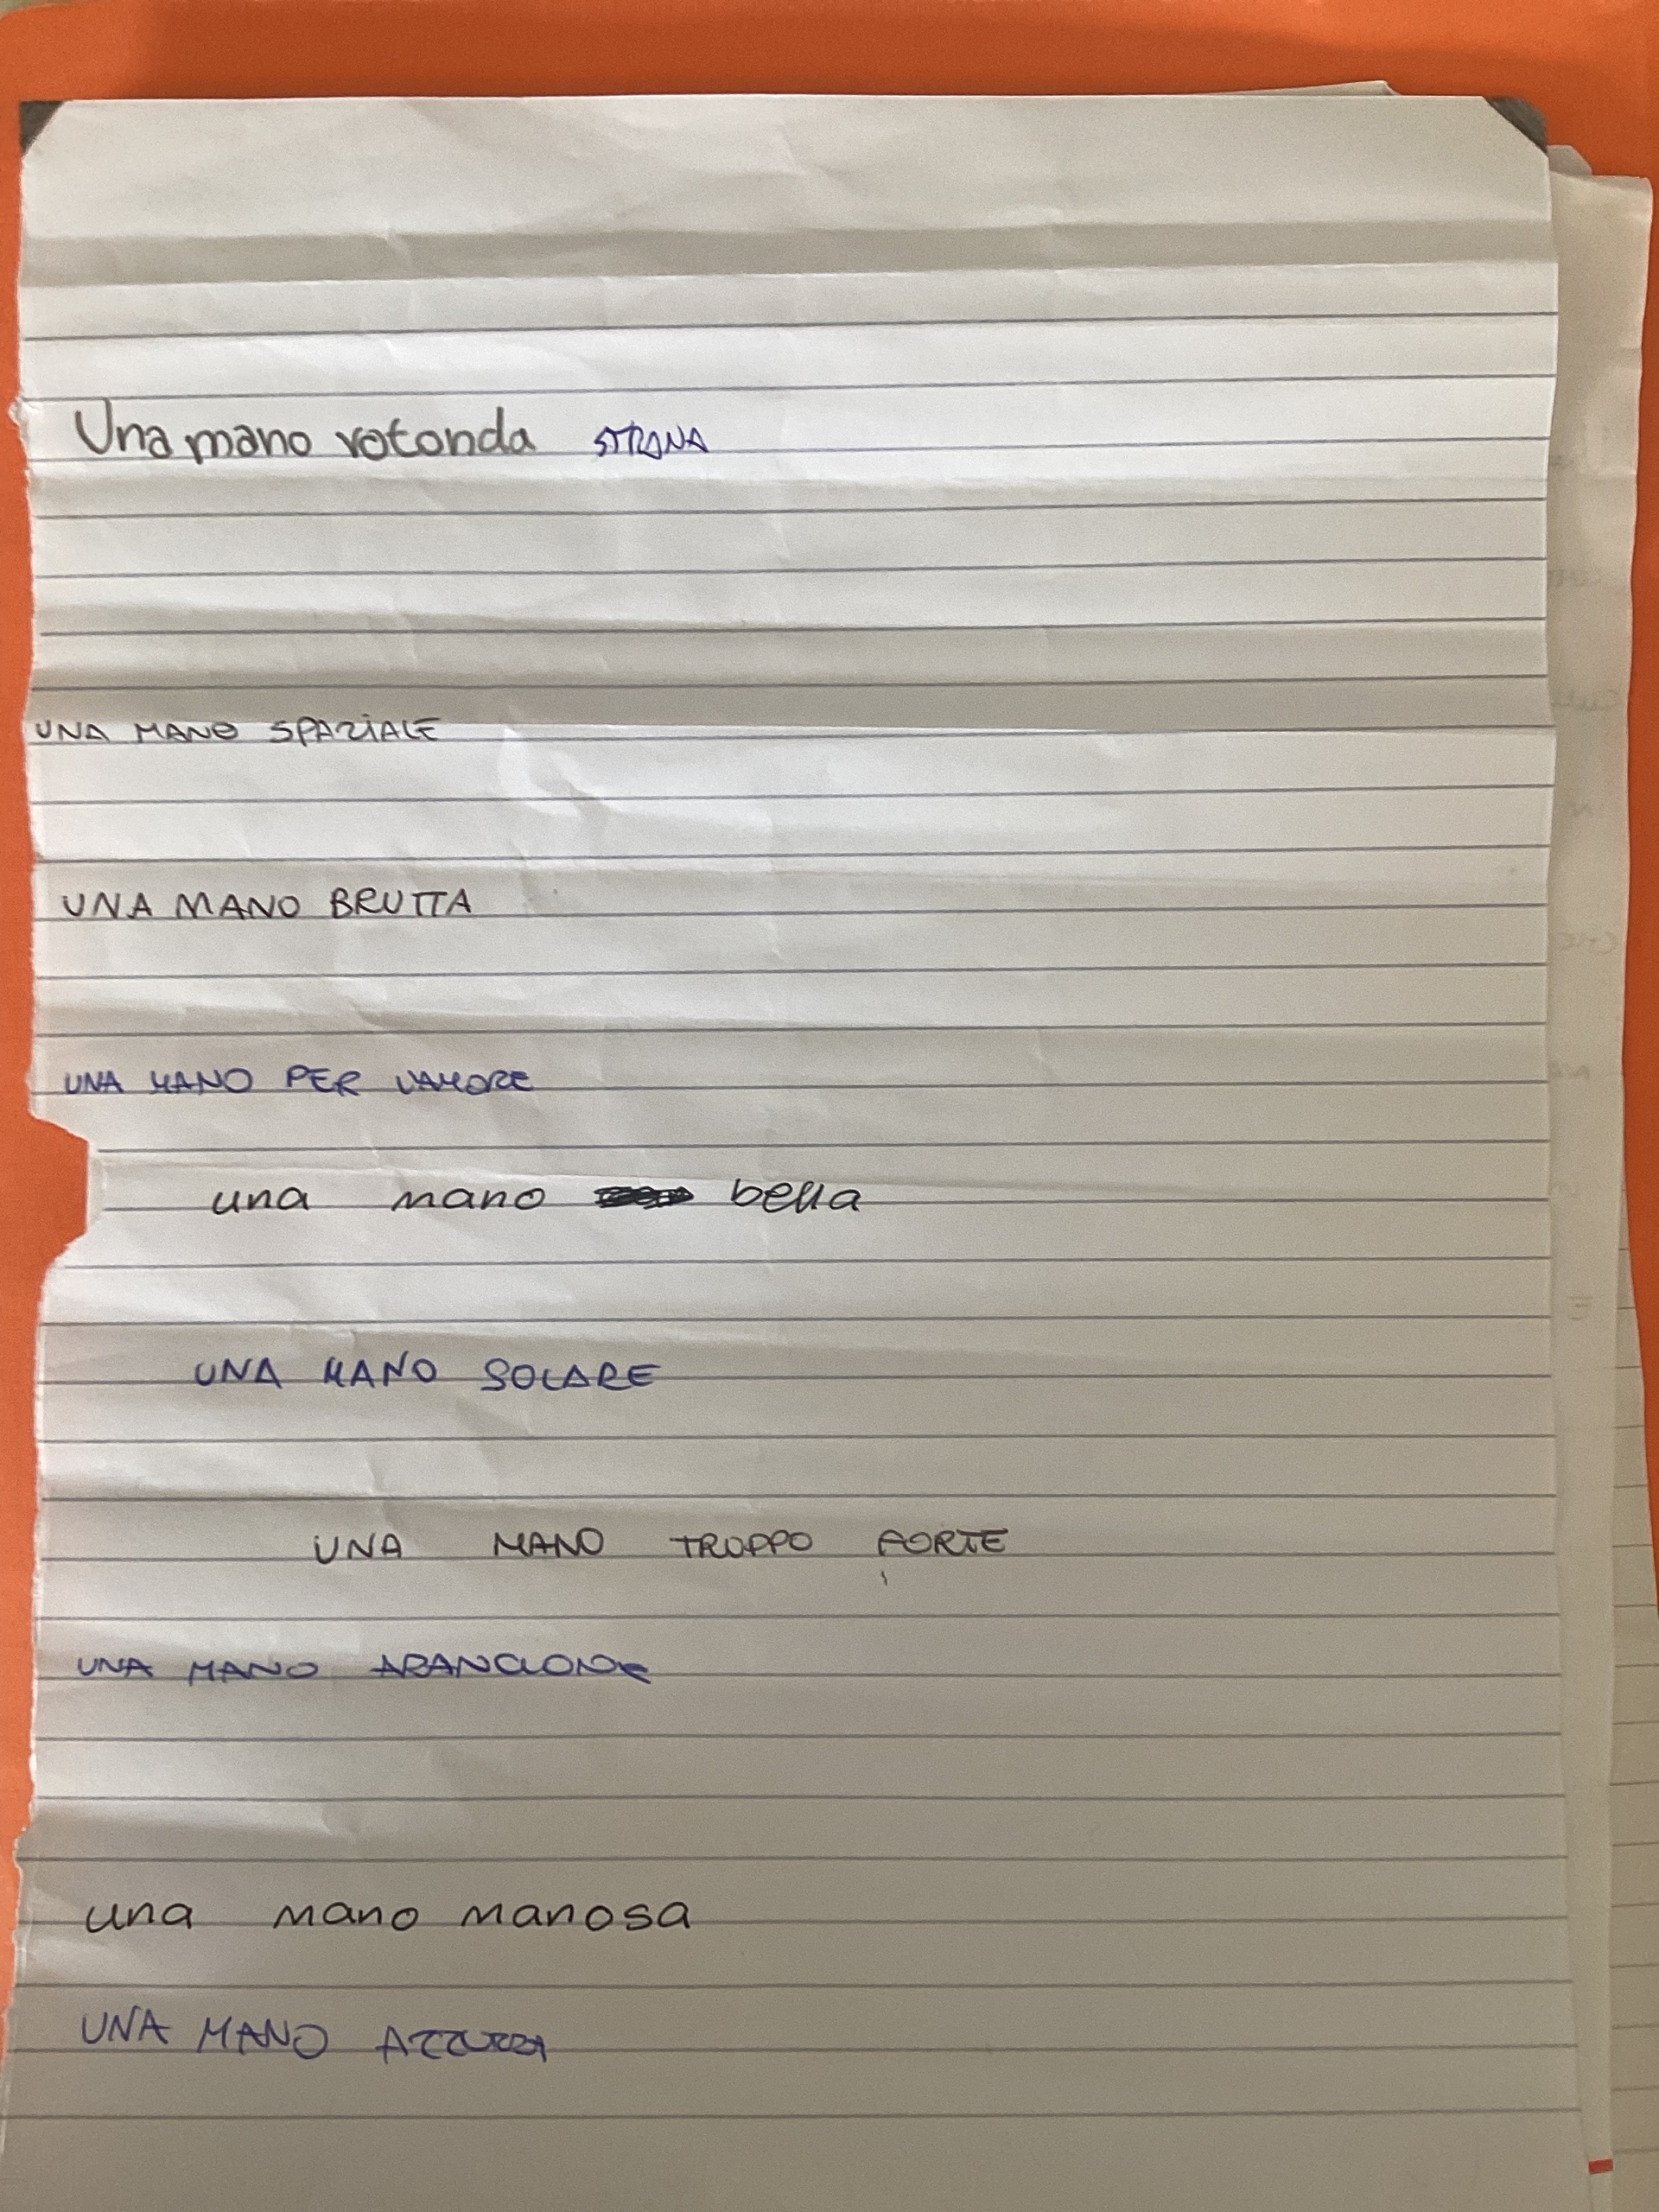 Una mano rotonda STRANA
UNA MANO SPAZIALE
UNA MANO BRUTTA
UNA MANO PER L'AMORE
una mano bella
UNA MANO SOLARE
UNA MANO TROPPO FORTE
UNA MANO ARANCIONE
una mano manosa
UNA MANO AZZURRA